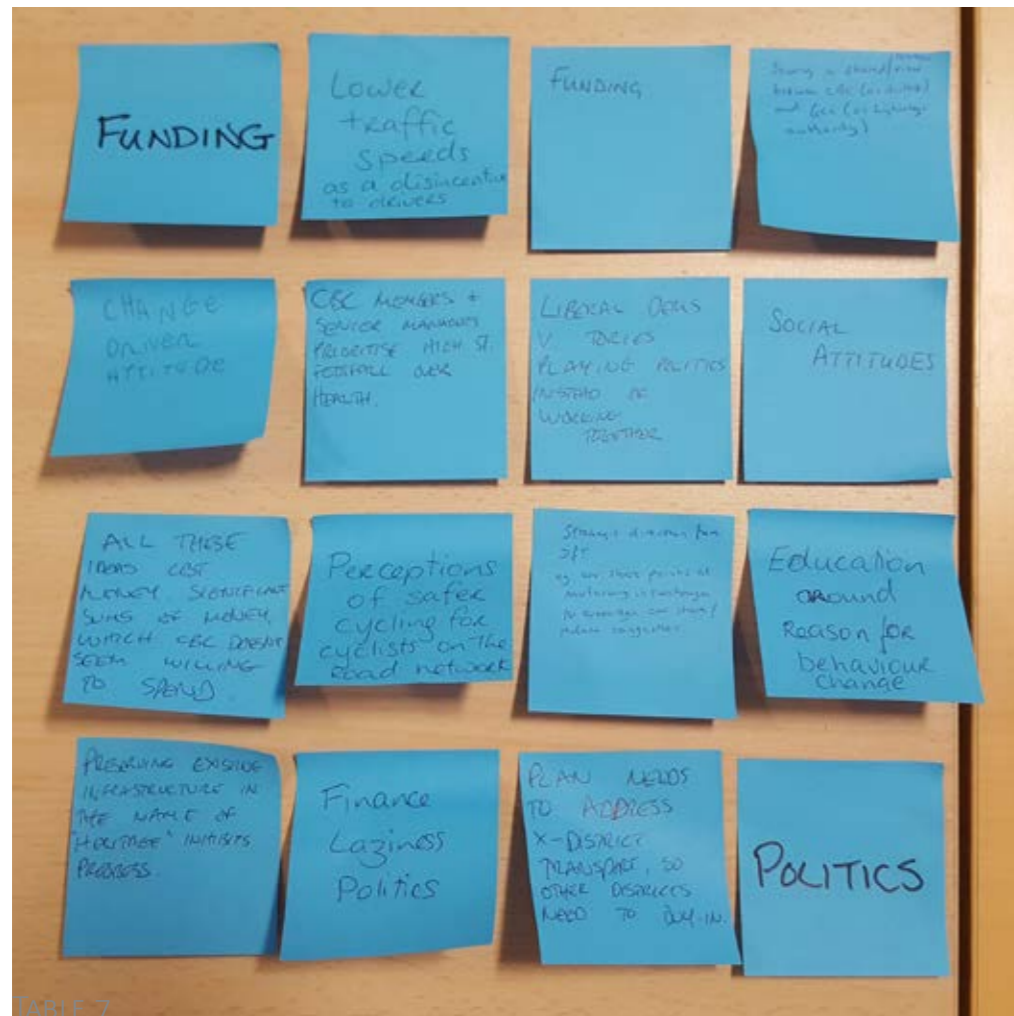 FUNDING
Lower
traffic
speeds
as a disincentive
to drivers
FUNDING
between CBC (as district)
and GCC (as highways
authority)
CHANGE
DRIVER
ATTITUDE
CBC MEMBERS +
SENIOR MANAGERS
PRIORITISE HIGH ST.
FOOTFALL OVER
HEALTH.
LIBERAL DEMS
V TORIES
PLAYING POLITICS
INSTEAD OF
WORKING
TOGETHER
SOCIAL
ATTITUDES
ALL THESE
IDEAS COST
MONEY. SIGNIFICANT
SUMS OF MONEY,
WHICH CBC DOESN'T
SEEM WILLING
TO SPEND.
Perceptions
of safer
cycling for
cyclists on the
road network
Strategic direction from
Education
around
Reason for
behaviour
change
PRESERVING EXISTING
INFRASTRUCTURE IN
THE NAME OF
'HERITAGE' INHIBITS
PROGRESS.
Finance
Laziness
Politics
PLAN NEEDS
TO ADDRESS
X-DISTRICT
TRANSPORT, SO
OTHER DISTRICTS
NEED TO BUY-IN.
POLITICS
TABLE 7